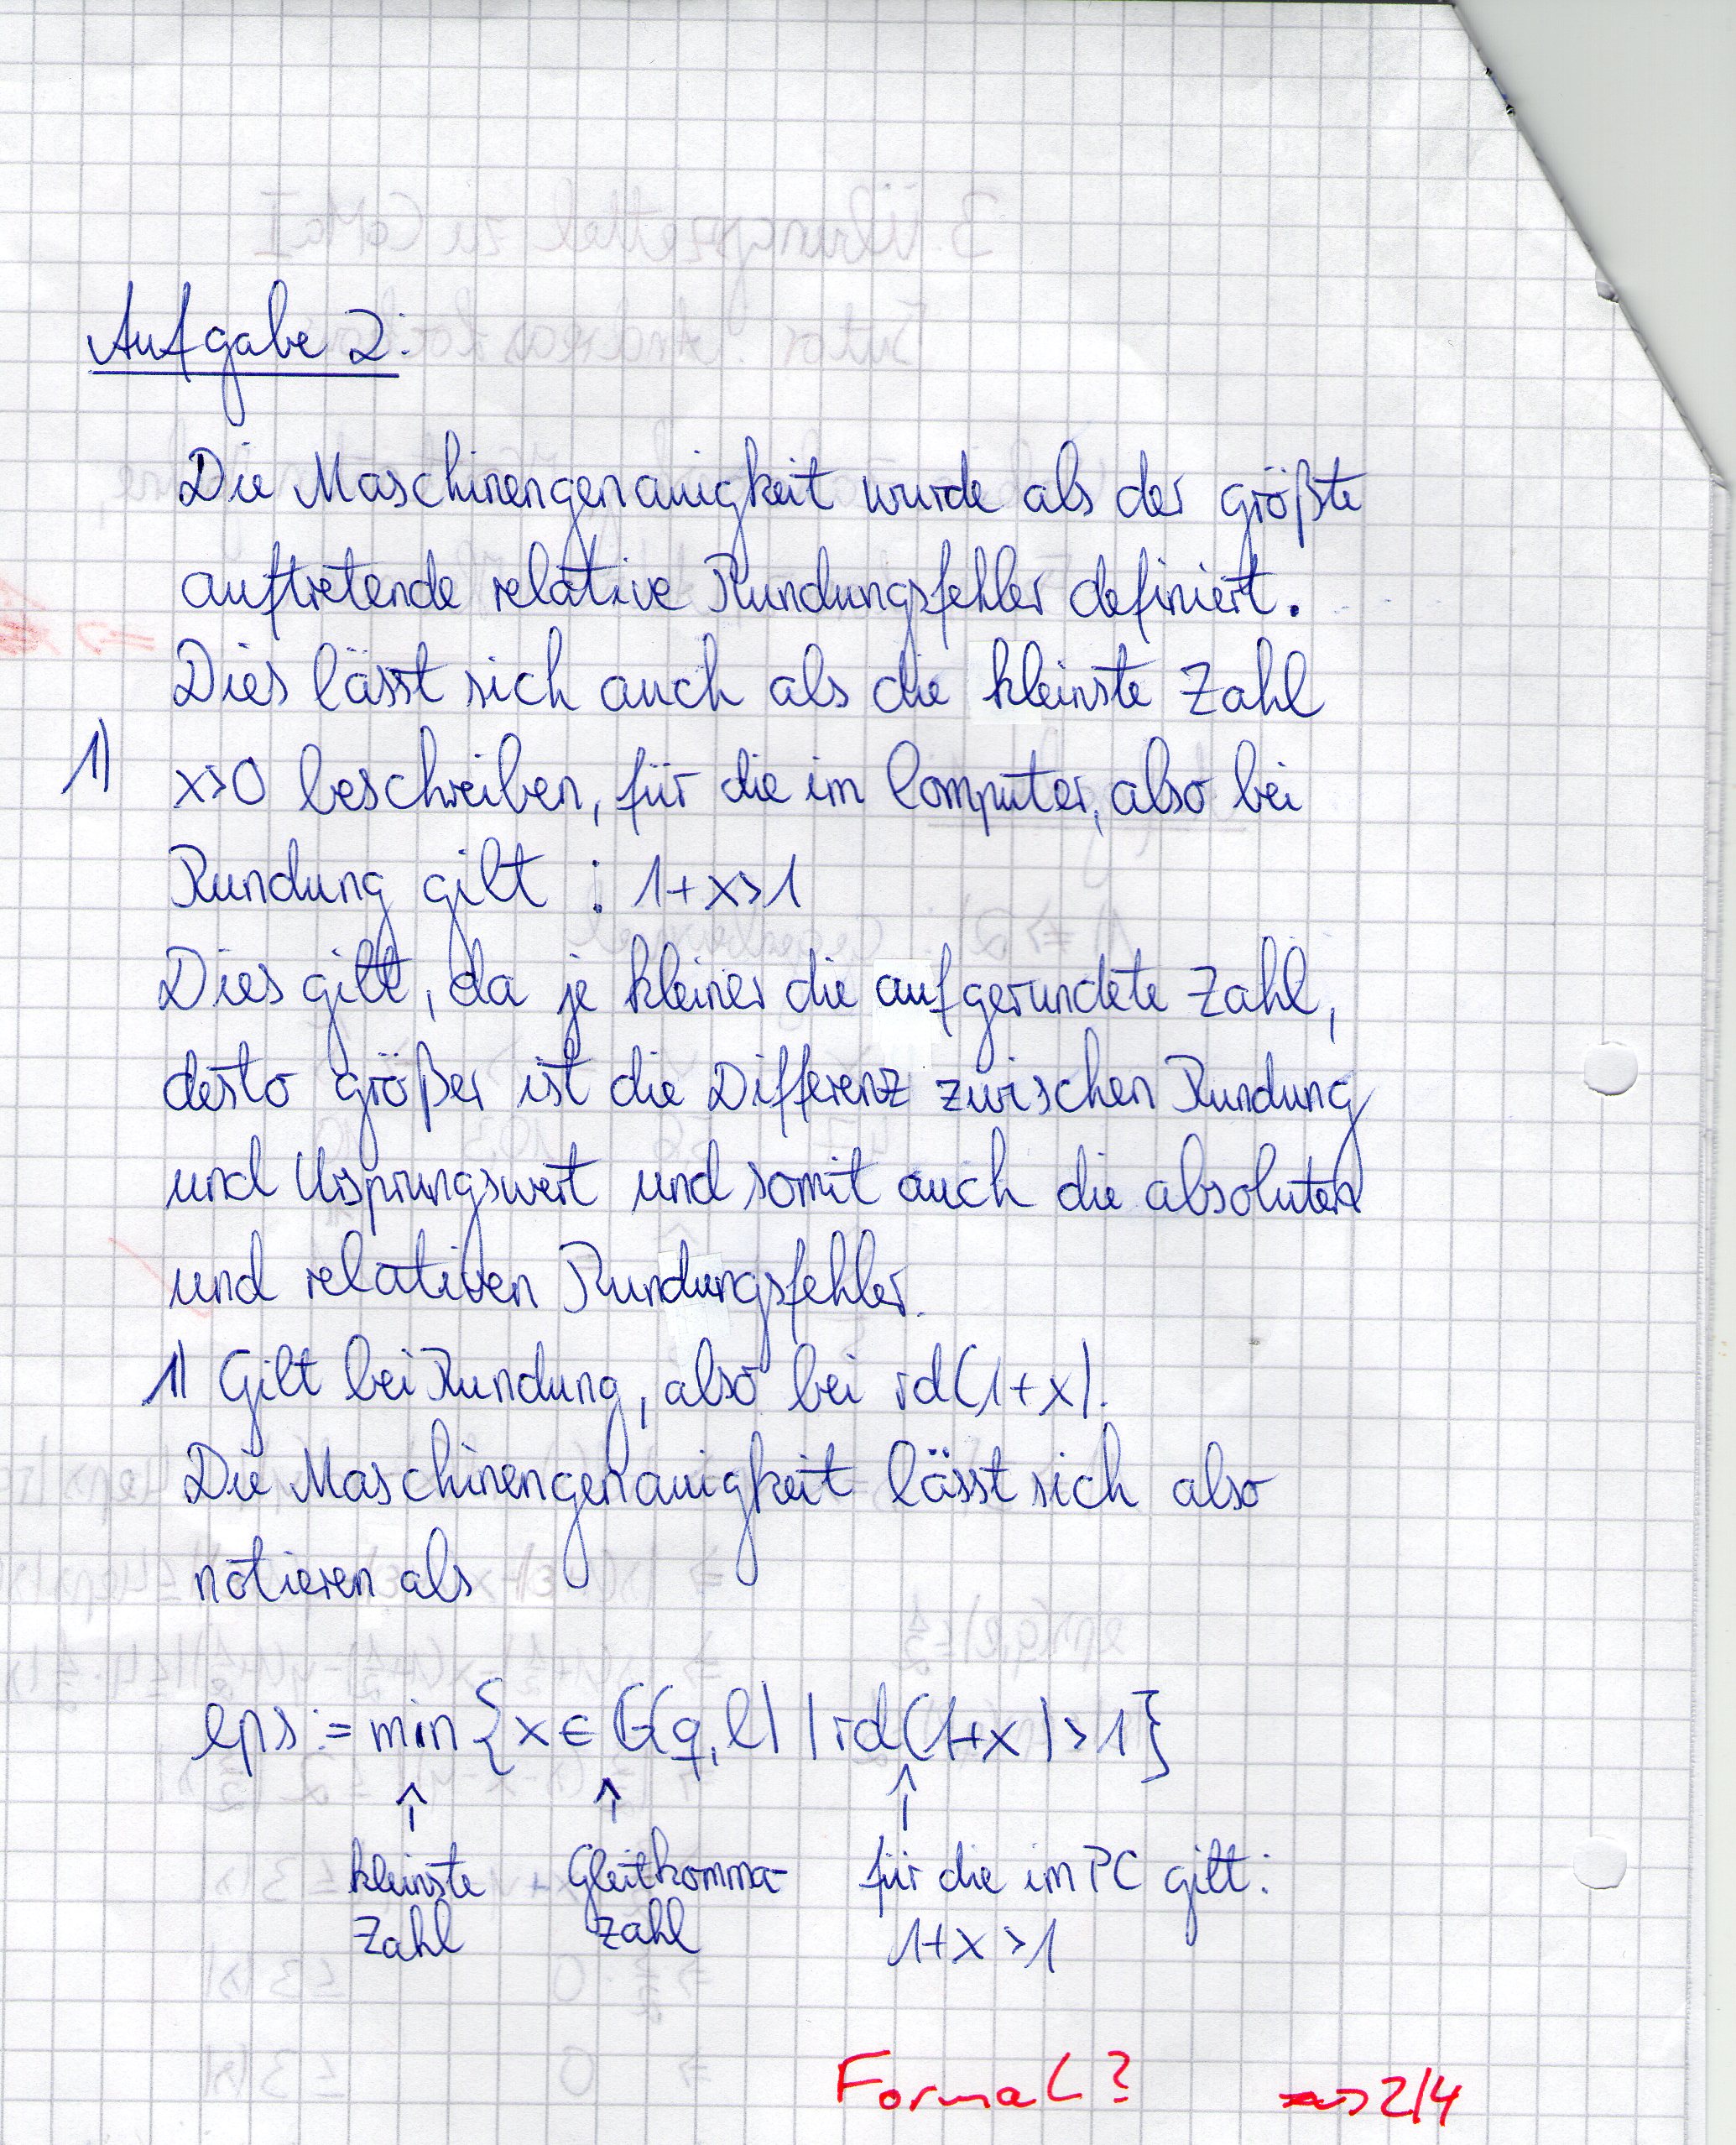 Aufgabe 2:
Die Maschinengenauigkeit wurde als der größte
auftretende relative Rundungsfehler definiert.
Dies lässt sich auch als die kleinste Zahl
1) x>0 beschreiben, für die im Computer, also bei
Rundung gilt : 1+x>1
Dies gilt, da je kleiner die aufgerundete Zahl,
desto größer ist die Differenz zwischen Rundung
und Ursprungswert und somit auch die absoluten
und relativen Rundungsfehler.
1) Gilt bei Rundung, also bei rd(1+x).
Die Maschinengenauigkeit lässt sich also
notieren als
eps := min{x ∈ G(q,l) | rd(1+x) > 1}
↑ ↑ ↑
kleinste Gleitkomma- für die im PC gilt:
Zahl zahl 1+x >1
Formal? 2/4